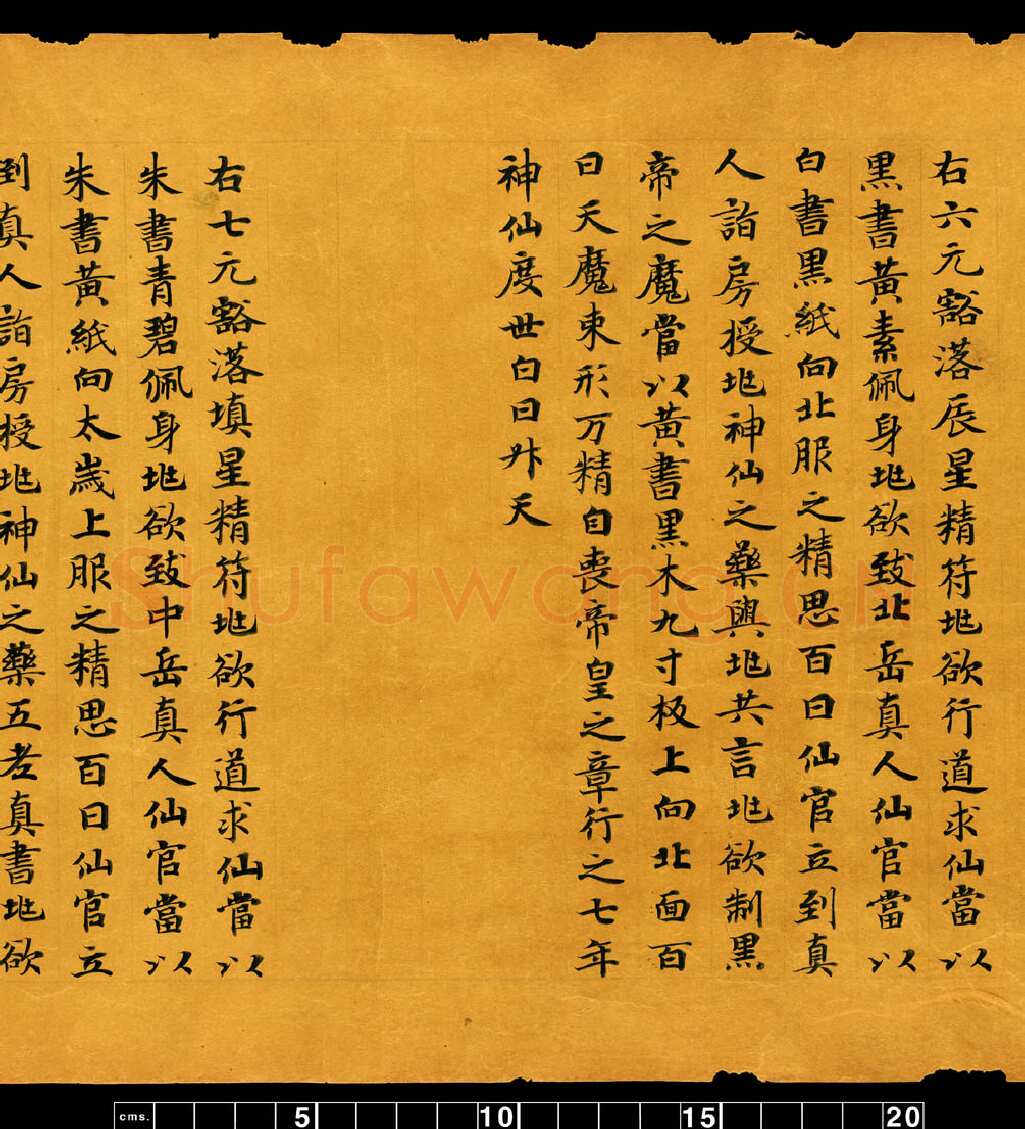 右六元豁落辰星精符兆欲行道求仙當以
黑書黃素佩身兆欲致北岳真人仙官當以
白書黑紙向北服之精思百日仙官立到真
人詣房授兆神仙之藥與兆共言兆欲制黑
帝之魔當以黃書黑木九寸板上向北面百
日天魔束形万精自喪帝皇之章行之七年
神仙度世白日升天
右七元豁落填星精符兆欲行道求仙當以
朱書青碧佩身兆欲致中岳真人仙官當以
朱書黃紙向太歲上服之精思百日仙官立
到真人詣房授兆神仙之藥五老真書兆欲
Shufawang.CN
cms. 5 10 15 20